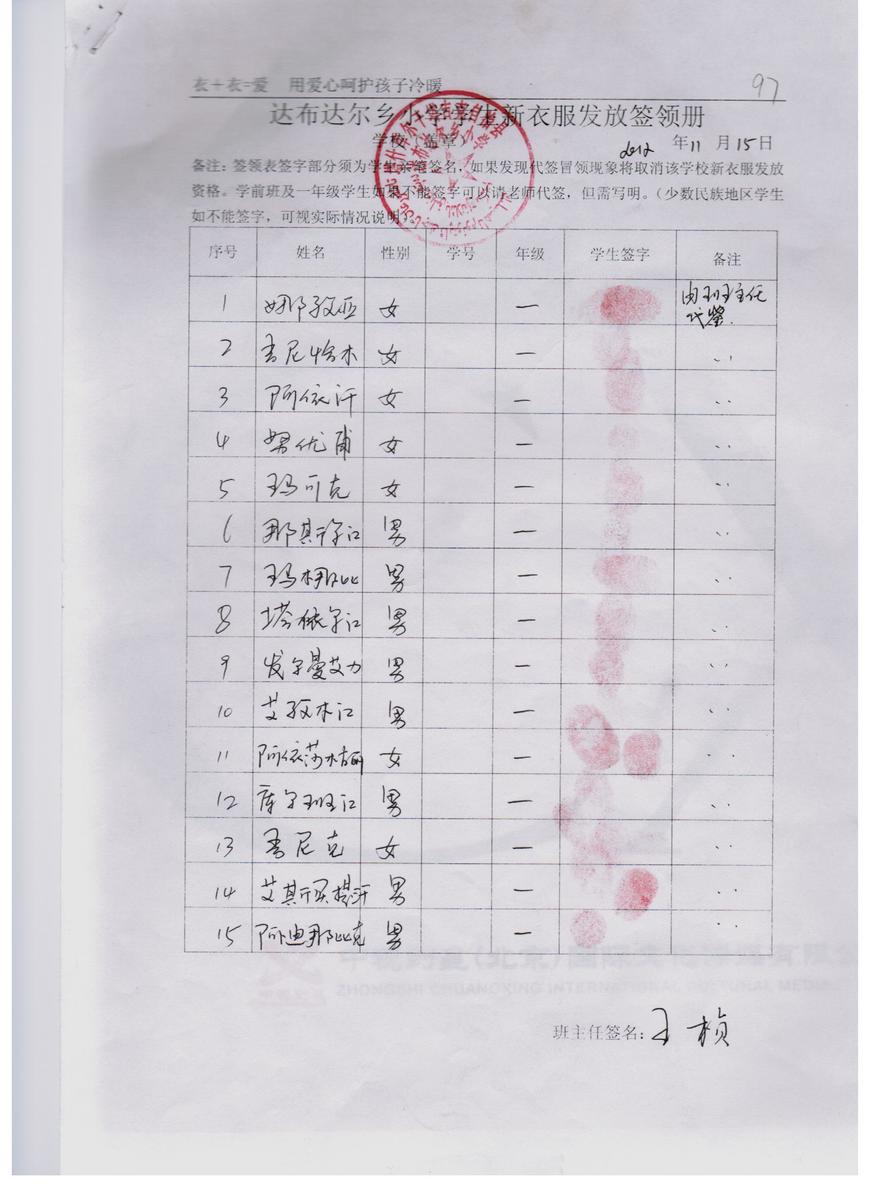 衣+衣=爱 用爱心呵护孩子冷暖
97
达布达尔乡小学学生新衣服发放签领册
学校（盖章） 2012 年 11 月 15 日
备注：签领表签字部分须为学生亲笔签名，如果发现代签冒领现象将取消该学校新衣服发放
资格。学前班及一年级学生如果不能签字可以请老师代签，但需写明。（少数民族地区学生
如不能签字，可视实际情况说明）。
序号 姓名 性别 学号 年级 学生签字 备注
1 娜孜亚 女 一 由班主任
代签.
2 吾尼恰木 女 一 〃
3 阿依汗 女 一 〃
4 努优甫 女 一 〃
5 玛可克 女 一 〃
6 那其尔江 男 一 〃
7 玛木那比 男 一 〃
8 塔依尔江 男 一 〃
9 发尔曼艾力 男 一 〃
10 艾孜木江 男 一 〃
11 阿依莎 女 一 〃
12 库尔班江 男 一 〃
13 吾尼克 女 一 〃
14 男 一 〃
15 阿迪那比克 男 一 〃
(北京)国际文化传媒有限公
ZHONGSHI CHUANGXING INTERNATIONAL CULTURAL MEDIA
班主任签名：王桢